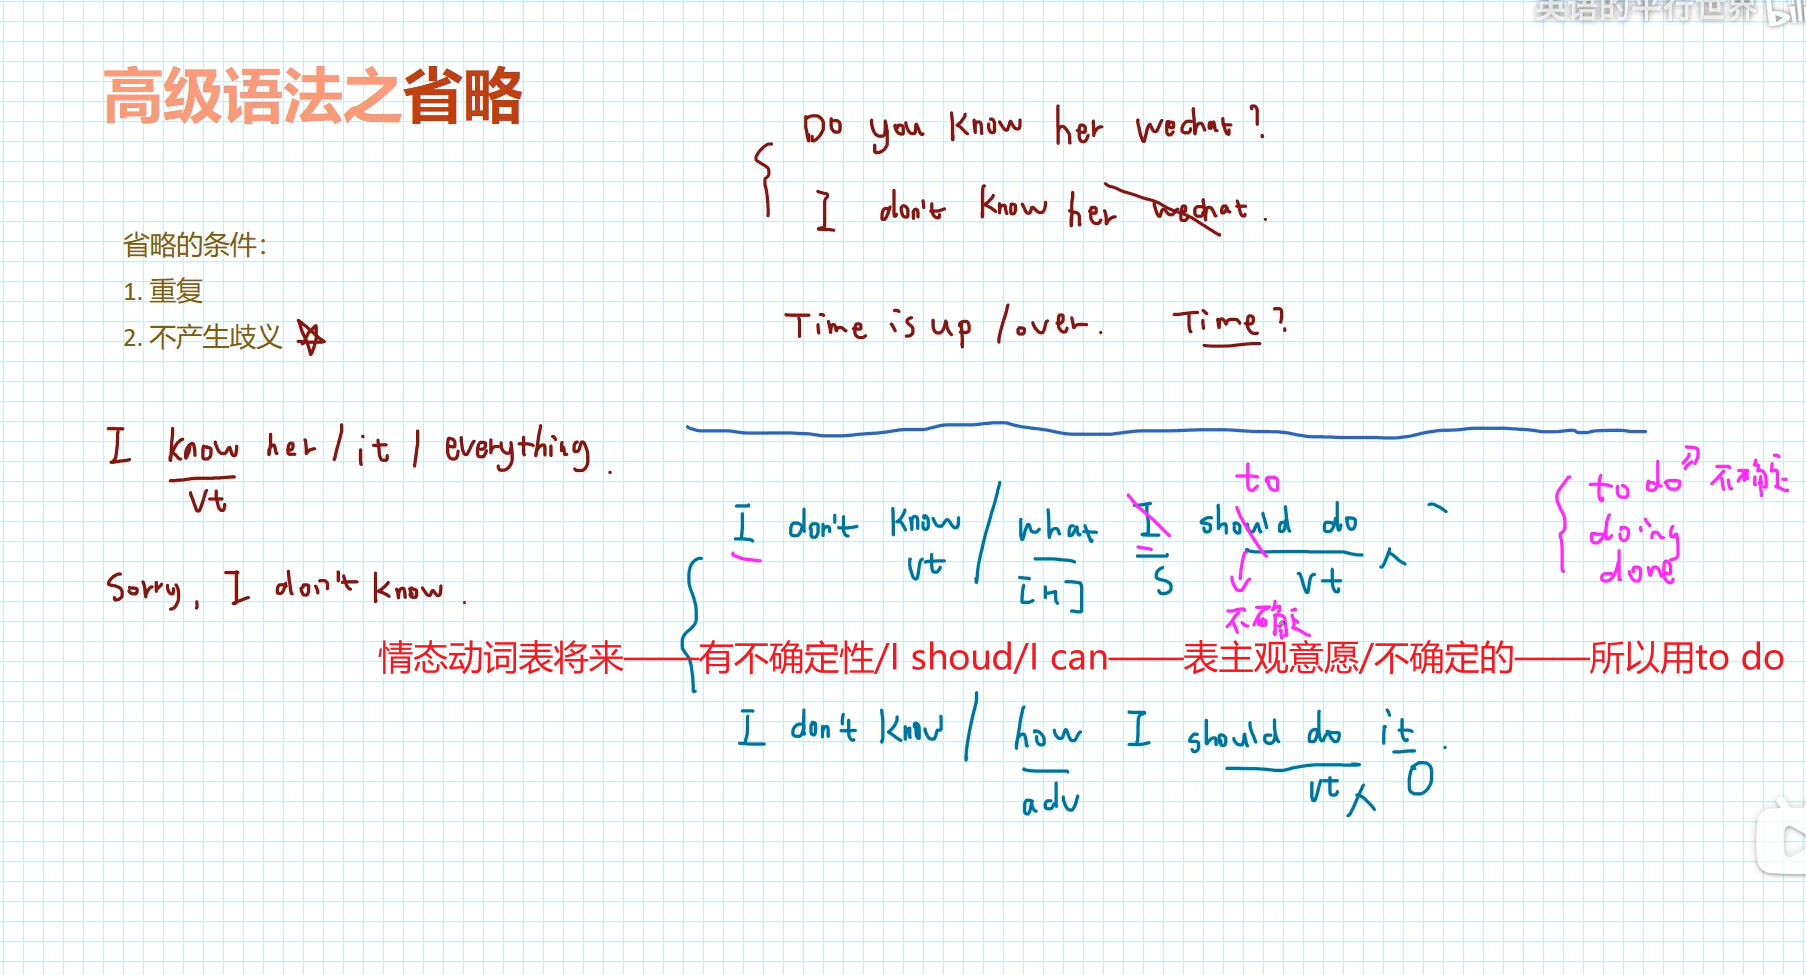 英语的平行世界 bili
高级语法之省略
Do you know her wechat?
I don't know her wechat.
省略的条件：
1. 重复
2. 不产生歧义
Time is up / over. Time?
I know her / it / everything.
vt
to
to do 不确定
I don't know / what I should do
doing
vt [n] S vt 人
done
Sorry, I don't know.
不确定
情态动词表将来——有不确定性/I shoud/I can——表主观意愿/不确定的——所以用to do
I don't know / how I should do it.
adv vt 人 O